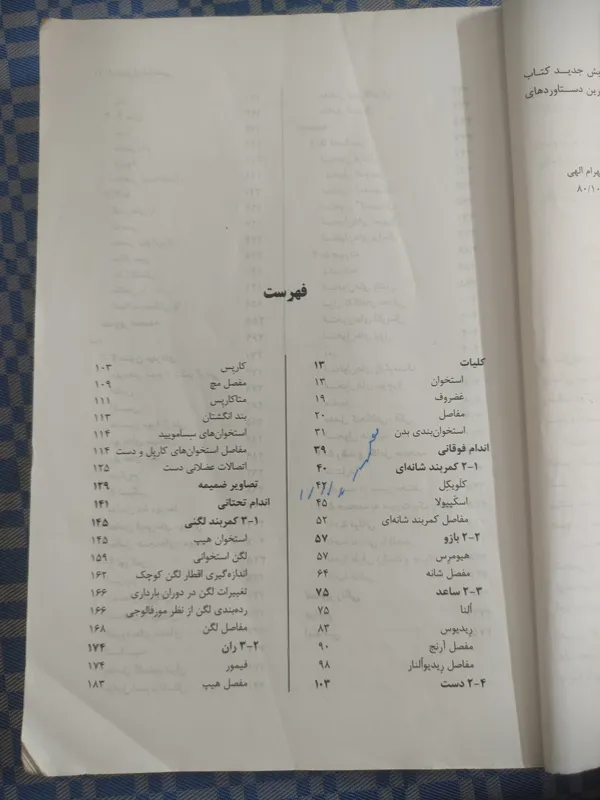 فهرست
کلیات ۱۳
استخوان ۱۳
غضروف ۱۹
مفاصل ۲۰
استخوان‌بندی بدن ۳۱
اندام فوقانی ۳۹
۲-۱ کمربند شانه‌ای ۴۰
کلویکل ۴۲
اسکپیولا ۴۵
مفاصل کمربند شانه‌ای ۵۲
۲-۲ بازو ۵۷
هیومرس ۵۷
مفصل شانه ۶۴
۲-۳ ساعد ۷۵
اُلنا ۷۵
رِیدیوس ۸۳
مفصل آرنج ۹۰
مفاصل رِیدیواُلنار ۹۸
۲-۴ دست ۱۰۳
کارپس ۱۰۳
مفصل مچ ۱۰۹
متاکارپس ۱۱۱
بند انگشتان ۱۱۳
استخوان‌های سِسامویید ۱۱۴
مفاصل استخوان‌های کارپل و دست ۱۱۴
اتصالات عضلانی دست ۱۲۵
تصاویر ضمیمه ۱۲۹
اندام تحتانی ۱۴۱
۳-۱ کمربند لگنی ۱۴۵
استخوان هیپ ۱۴۵
لگن استخوانی ۱۵۹
اندازه‌گیری اقطار لگن کوچک ۱۶۲
تغییرات لگن در دوران بارداری ۱۶۶
رده‌بندی لگن از نظر مورفالوجی ۱۶۶
مفاصل لگن ۱۶۸
۳-۲ ران ۱۷۴
فیمور ۱۷۴
مفصل هیپ ۱۸۳
یش جدید کتاب
رین دستاوردهای
هرام الهی
۸۰/۱۰